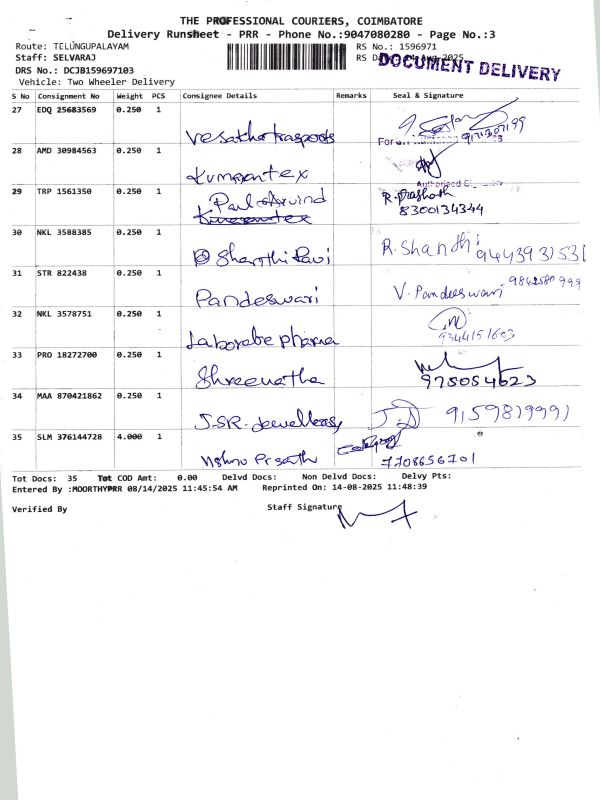 THE PROFESSIONAL COURIERS, COIMBATORE
Delivery Runsheet - PRR - Phone No.:9047080280 - Page No.:3
Route: TELUNGUPALAYAM
RS No.: 1596971
Staff: SELVARAJ
DOCUMENT DELIVERY
DRS No.: DCJB159697103
Vehicle: Two Wheeler Delivery
S No Consignment No Weight PCS Consignee Details Remarks Seal & Signature
27 EDQ 25683569 0.250 1
28 AMD 30984563 0.250 1
Kumarantex
Authorised
29 TRP 1561350 0.250 1 Paul Arvind R. Prashath
8300134344
30 NKL 3588385 0.250 1 Shanthi Ravi R. Shanthi 9443931531
31 STR 822438 0.250 1 Pandeswari V. Pandeeswari 9842580999
32 NKL 3578751 0.250 1 Laborate pharma
9344151603
33 PRO 18272700 0.250 1 Shreenatha
975054623
34 MAA 870421862 0.250 1 J.S.R. Jewellery 9159819991
35 SLM 376144728 4.000 1 Vishnu Prasath
7708656701
Tot Docs: 35 Tot COD Amt: 0.00 Delvd Docs: Non Delvd Docs: Delvy Pts:
Entered By :MOORTHYPRR 08/14/2025 11:45:54 AM Reprinted On: 14-08-2025 11:48:39
Verified By Staff Signature